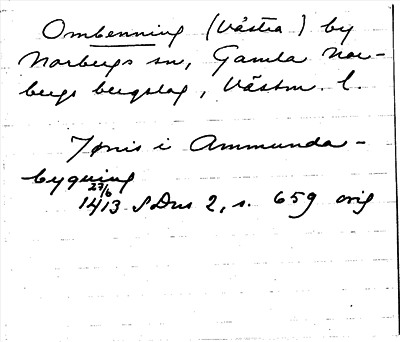 Ombenning (Västra) by
Norbergs sn, Gamla Nor-
bergs bergslag, Västm. l.
Tønis i Ammunda-
bygning
27/6
1413 SDns 2, s. 659 orig